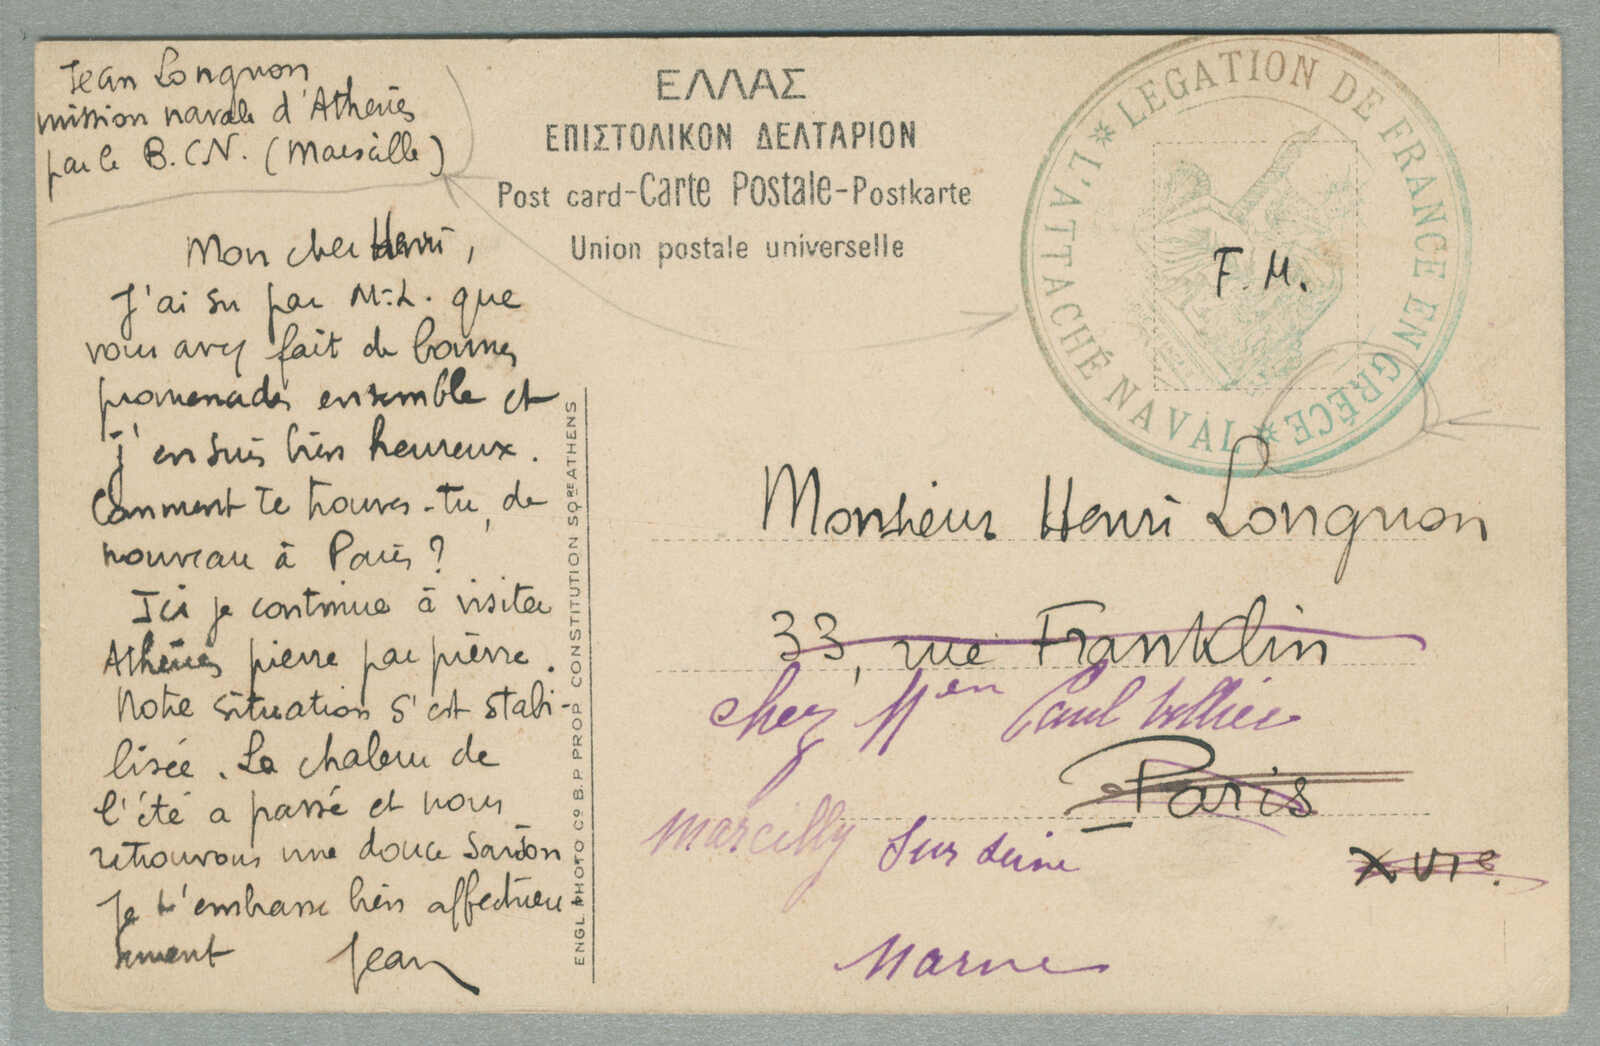 Jean Longnon
mission navale d'Athènes
par le B.C.N. (Marseille)
ΕΛΛΑΣ
ΕΠΙΣΤΟΛΙΚΟΝ ΔΕΛΤΑΡΙΟΝ
Post card-Carte Postale-Postkarte
Union postale universelle
* LEGATION DE FRANCE EN GRÈCE * L'ATTACHÉ NAVAL
F. M.
Mon cher Henri,
J'ai su par M.-L. que
vous avez fait de bonnes
promenades ensemble et
j'en suis bien heureux.
Comment te trouves-tu, de
nouveau à Paris ?
Ici je continue à visiter
Athènes pierre par pierre.
Notre situation s'est stabi-
lisée. La chaleur de
l'été a passé et nous
retrouvons une douce saison
Je t'embrasse bien affectueu-
sement Jean
ENGL. PHOTO Cº B.P. PROP. CONSTITUTION SQRE ATHENS
Monsieur Henri Longnon
33, rue Franklin
chez Paul
Paris
Marcilly sur Seine
XVIe.
Marne